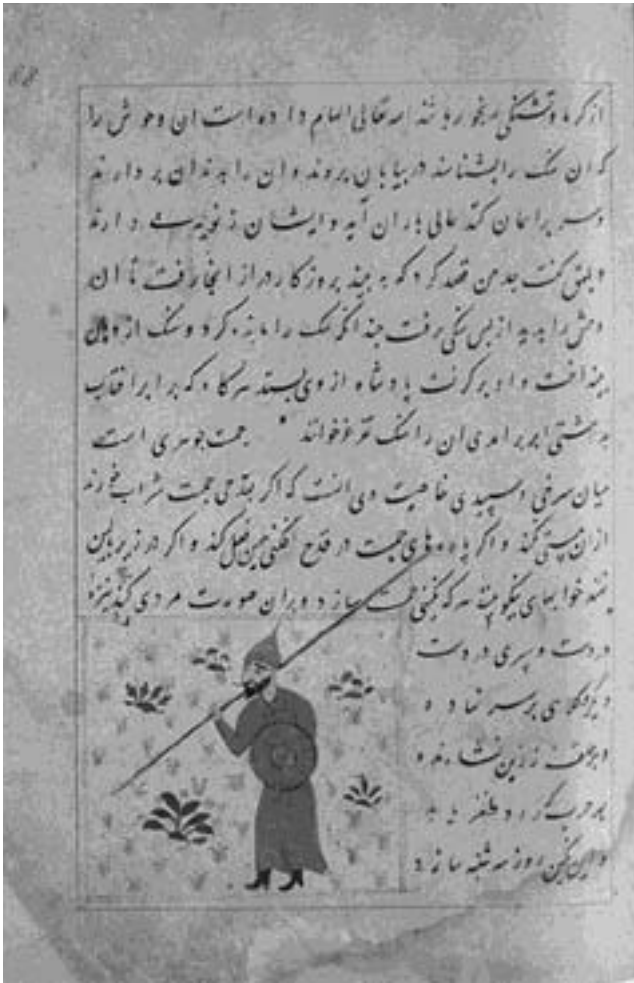 از کرما و تشنکی رنجور باشند الله تعالی الهام داده است ان وحوش را
که ان سنک را بشناسند در بیابان بروند و ان را بدندان بردارند
و سر براسمان کنند حالی باران آید و ایشان ز نوبه دارند
کفت جد من قصد کرد که به بیند بروزکار دراز انجا رفت تا ان
وحش را بدید از پس سنکی برفت چندانکه سنک را کرد و سنک از دهان
بیفتاد و او برکرفت پادشاه از وی بستد هر کاه که برابر افتاب
بداشتی ابر برامدی ان را سنک خوانند * جمت جوهری است
میان سرخی و سپیدی خاصیت وی انست که اکر بقدحی جمت شراب خورند
از ان مستی کند و اکر پاره‌های جمت در قدح افکنی همین فعل کند و اکر در زیر بالین
نهند خوابهای نیکو بیند هر که نکینی جمت سازد و بران صورت مردی کند نیزه
در دست و سپری در دست
دیکر و کلاهی بر سر نهاده
و زرین نشاند و
به حرب رود ظفر یابد
و این نکین روز سه شنبه سازد